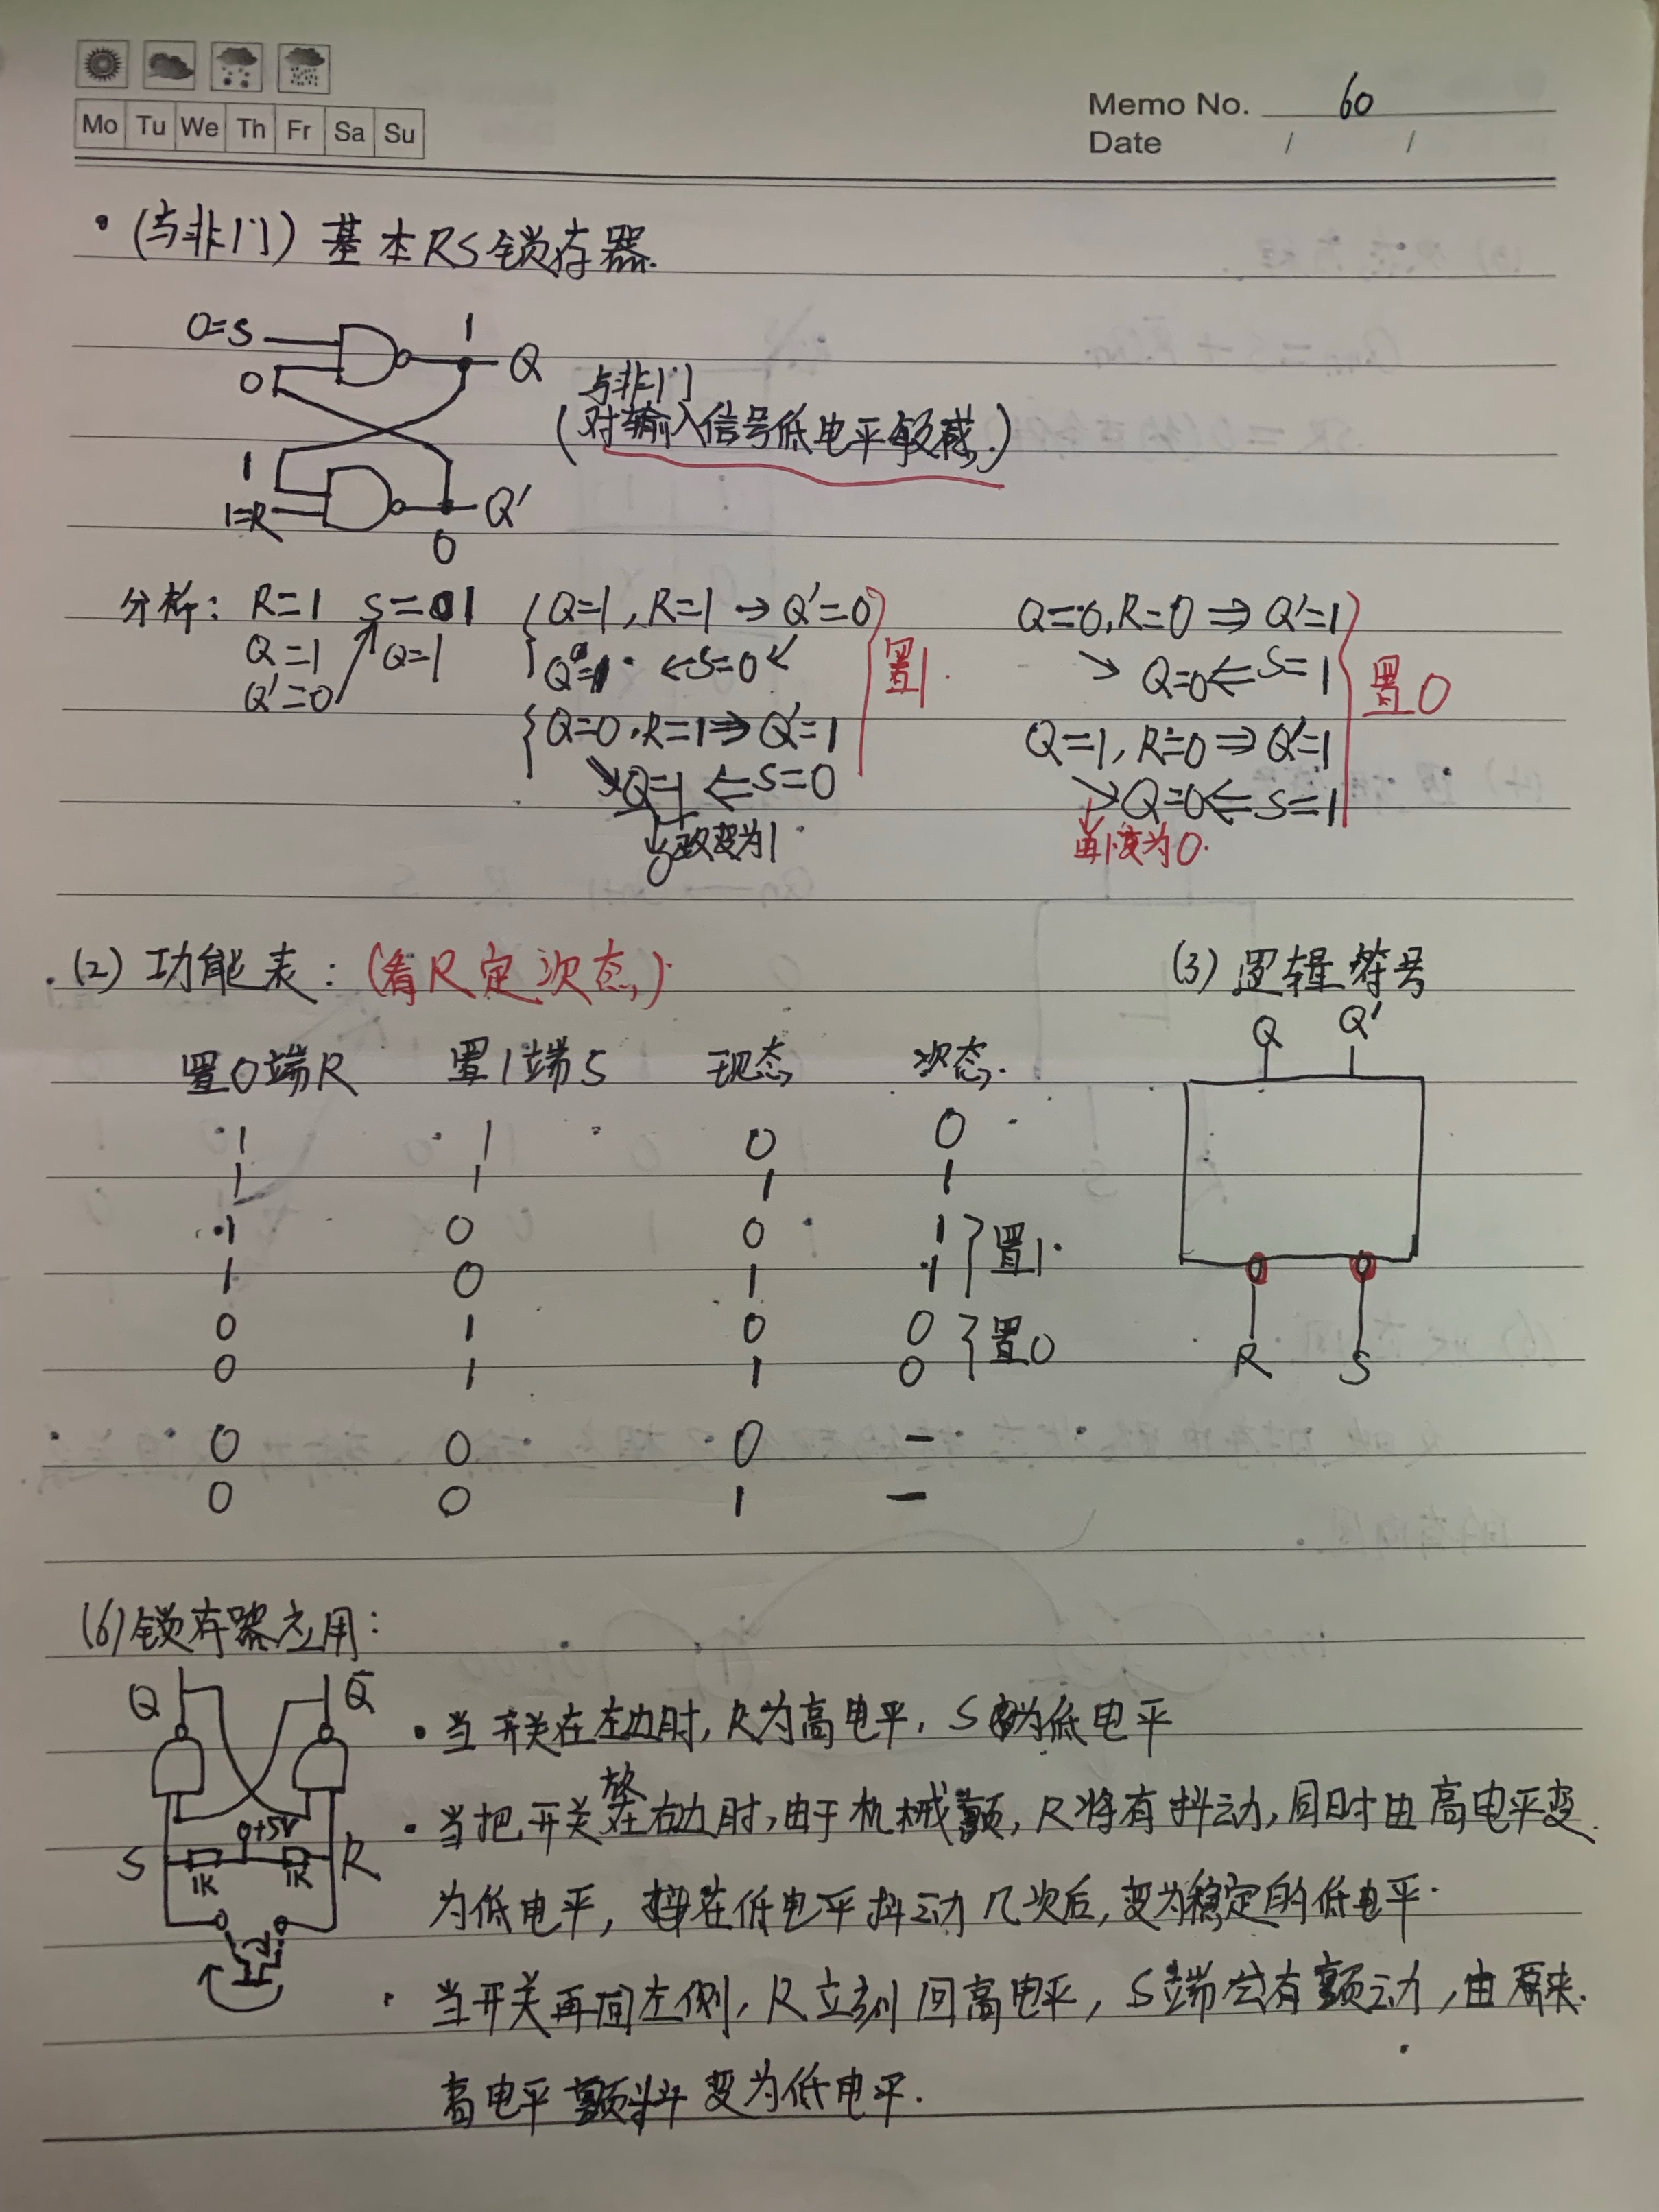 Mo Tu We Th Fr Sa Su
Memo No. 60
Date / /
·(与非门)基本RS锁存器.
0=S 1 Q
0
与非门
(对输入信号低电平敏感.)
1
1=R Q'
0
分析: R=1 S=01 Q=1,R=1→Q'=0 Q=0,R=0⇒Q'=1
Q=1 Q=1 ←S=0 置1. Q=0⇐S=1 置0
Q'=0
Q=0,R=1⇒Q'=1 Q=1,R=0⇒Q'=1
Q=1⇐S=0 Q=0⇐S=1
0改变为1 由1变为0.
(2)功能表:(看R定次态) (3)逻辑符号
Q Q'
置0端R 置1端S 现态 次态.
1 1 0 0
1 1 1 1
1 0 0 1 置1.
1 0 1 1
0 1 0 0 置0
0 1 1 0
R S
0 0 0 -
0 0 1 -
(6)锁存器应用:
Q Q̄
·当开关在左边时,R为高电平,S为低电平
·当把开关放在右边时,由于机械颤,R将有抖动,同时由高电平变
+5V
S 1K 1K R
为低电平,接在低电平抖动几次后,变为稳定的低电平.
·当开关再回左侧,R立刻回高电平,S端会有颤动,由原来
高电平颤抖变为低电平.